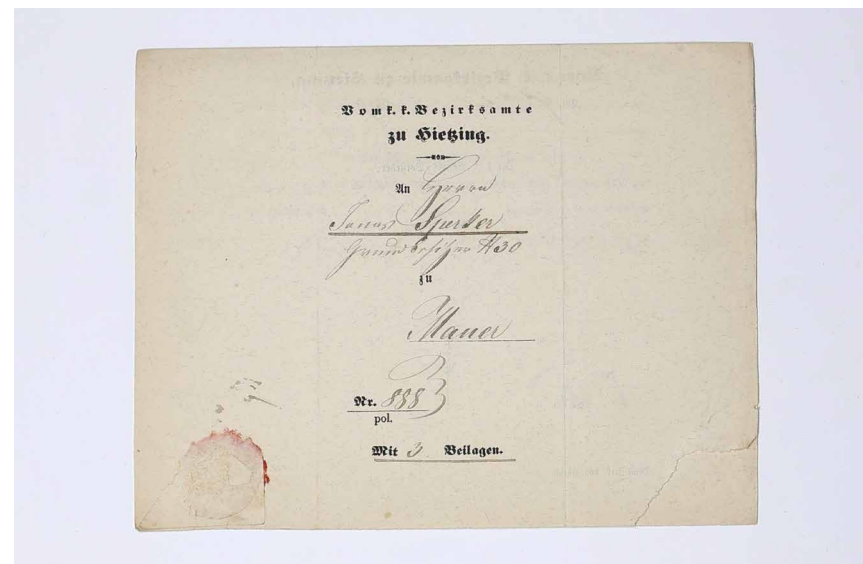 Vom k. k. Bezirksamte
zu Hietzing.
An Herrn
Sparker
Grundbesitzer N 30
zu
Mauer
Nr. 888
pol.
Mit 3 Beilagen.